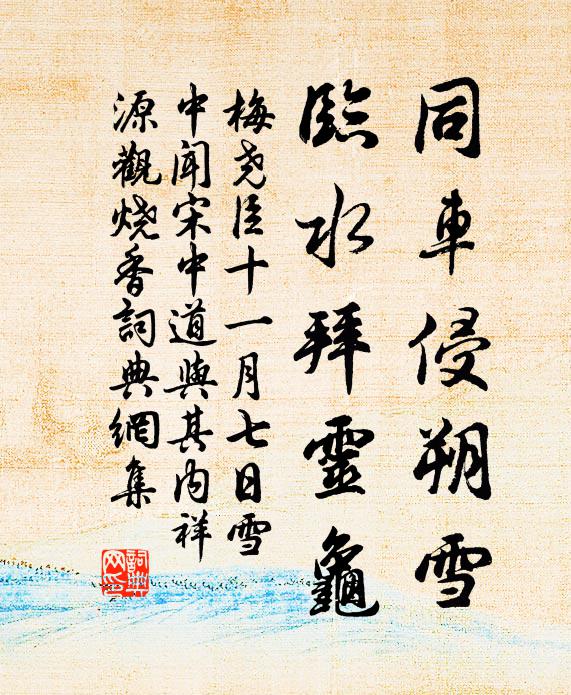 同車侵朔雪
臨水拜靈龜
梅堯臣十一月七日雪
中聞宋中道與其內祥
源觀燒香詞典網集
詞典網印